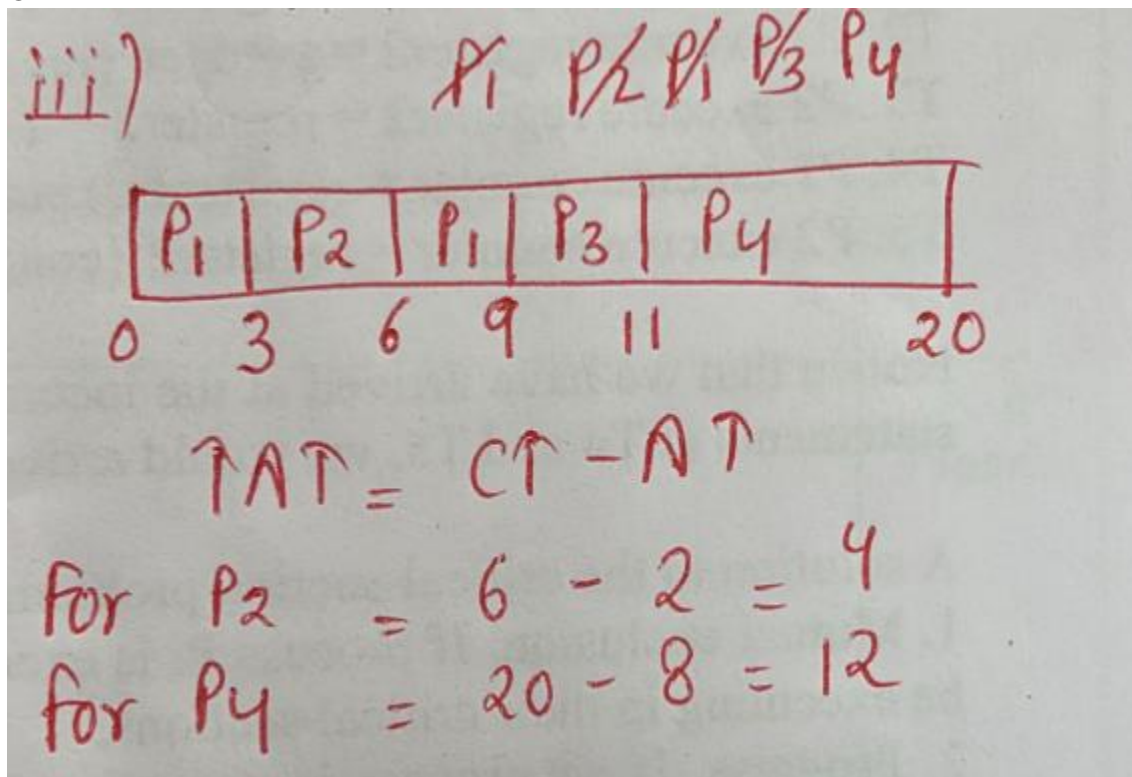 iii) P1 P2 P1 P3 P4
P1 P2 P1 P3 P4
0 3 6 9 11 20
TAT = CT - AT
for P2 = 6 - 2 = 4
for P4 = 20 - 8 = 12